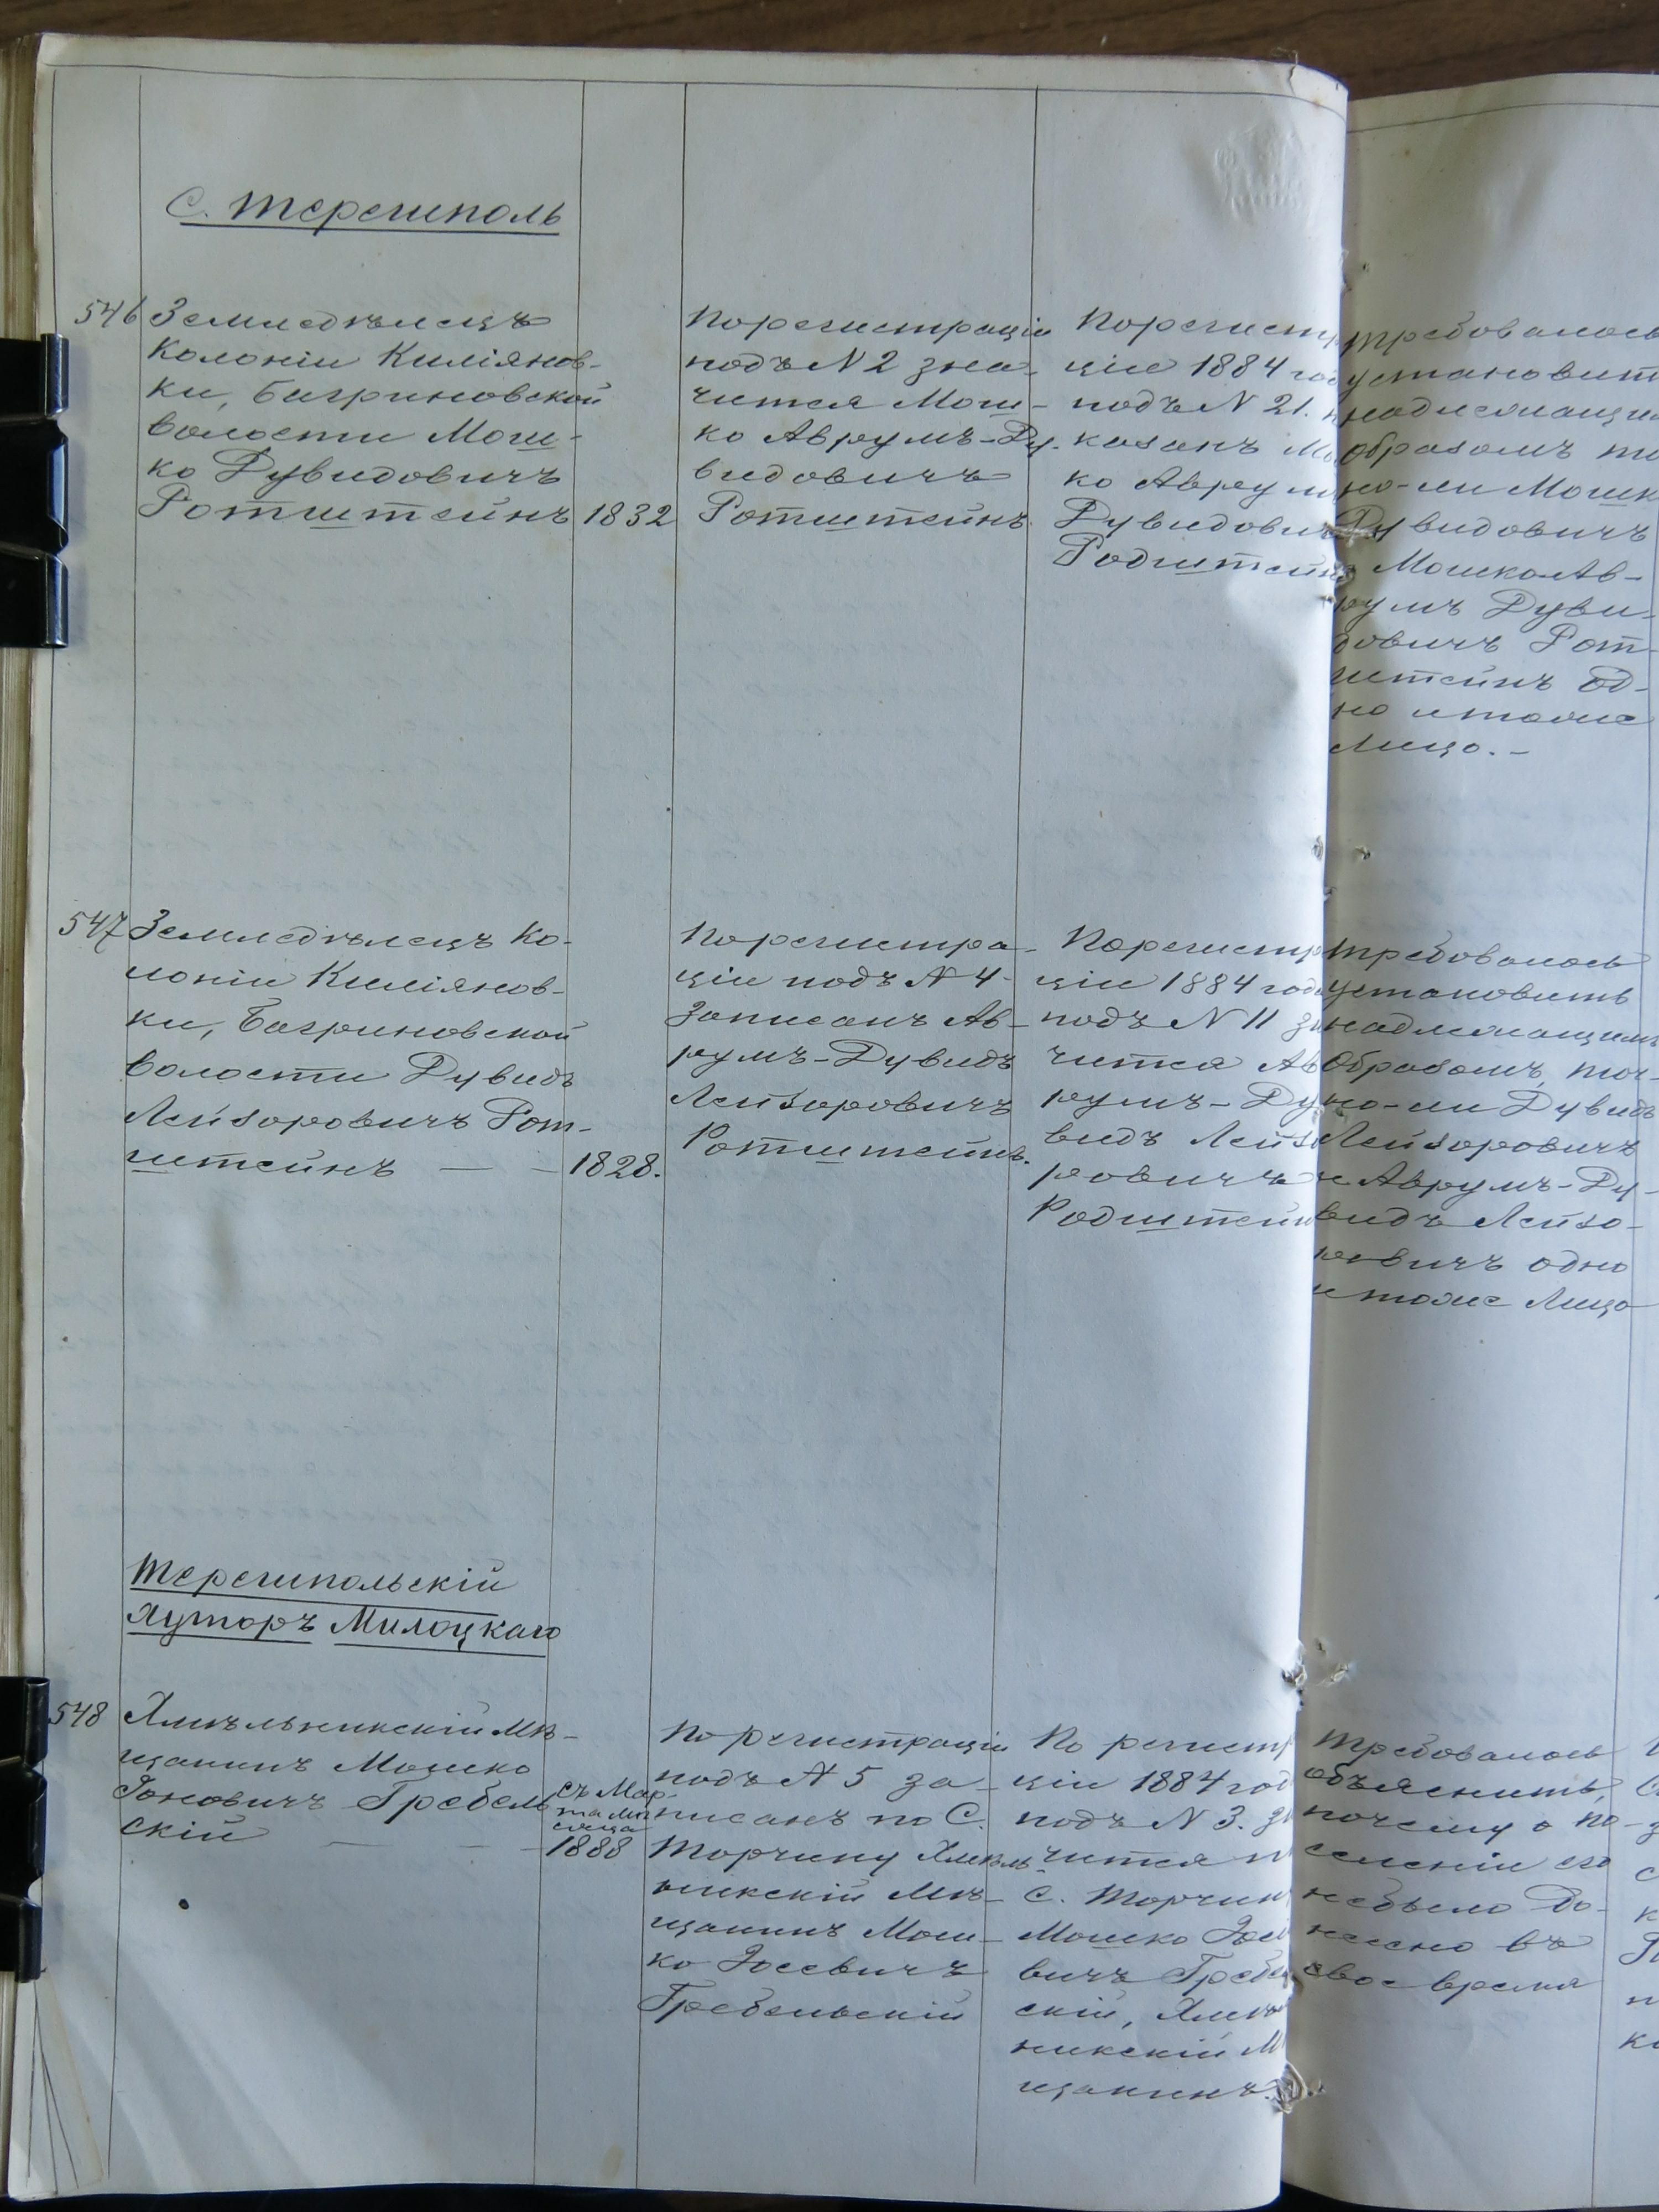 С. Терешполь
546
Земледѣлецъ
Колоніи Киліянов-
ки, Багриновской
волости Мош-
ко Дувидовичъ
Ротштейнъ
1832
По регистраціи
подъ N 2 зна-
чится Мош-
ко Аврумъ-Ду-
видовичъ
Ротштейнъ
По регист
ціи 1884 го
подъ N 21.
казанъ М
ко Аврум
Дувидович
Родштейн
требовалось
установит
надлежащи
образомъ то
но-ли Мошк
Дувидовичъ
Мошко Ав-
румъ Дуви-
довичъ Рот-
штейнъ од-
но и тоже
Лицо. -
547
Земледѣлецъ Ко-
лоніи Киліянов-
ки, Багриновской
волости Дувидъ
Лейзоровичъ Рот-
штейнъ — —
1828.
По регистра-
ціи подъ N 4
записанъ Ав-
румъ-Дувидъ
Лейзоровичъ
Ротштейнъ.
По регистр
ціи 1884 год
подъ N 11 з
чится Ав
румъ-Ду
видъ Лейз
ровичъ
Родштейн
требовалось
установить
надлежащимъ
образомъ, точ-
но-ли Дувидъ
Лейзоровичъ
и Аврумъ-Ду-
видъ Лейзо-
ровичъ одно
и тоже Лицо
Терешпольскій
Хуторъ Милоцкаго
548
Хмѣльникскій мѣ-
щанинъ Мошко
Іоновичъ Гребель
скій — —
съ Мар-
та мѣ
сяца
1888
По регистраціи
подъ N 5 за-
писанъ по С.
Торчину Хмѣль-
никскій мѣ-
щанинъ Мош-
ко Іосевичъ
Гребельскій
По регист
ціи 1884 год
подъ N 3. з
чится п
С. Торчин
Мошко Іос
вичъ Гребе
скій, Хмѣ
никскій М
щанинъ.
Требовалось
объяснить,
почему о по-
селеніи его
небыло до-
несено въ
свое время